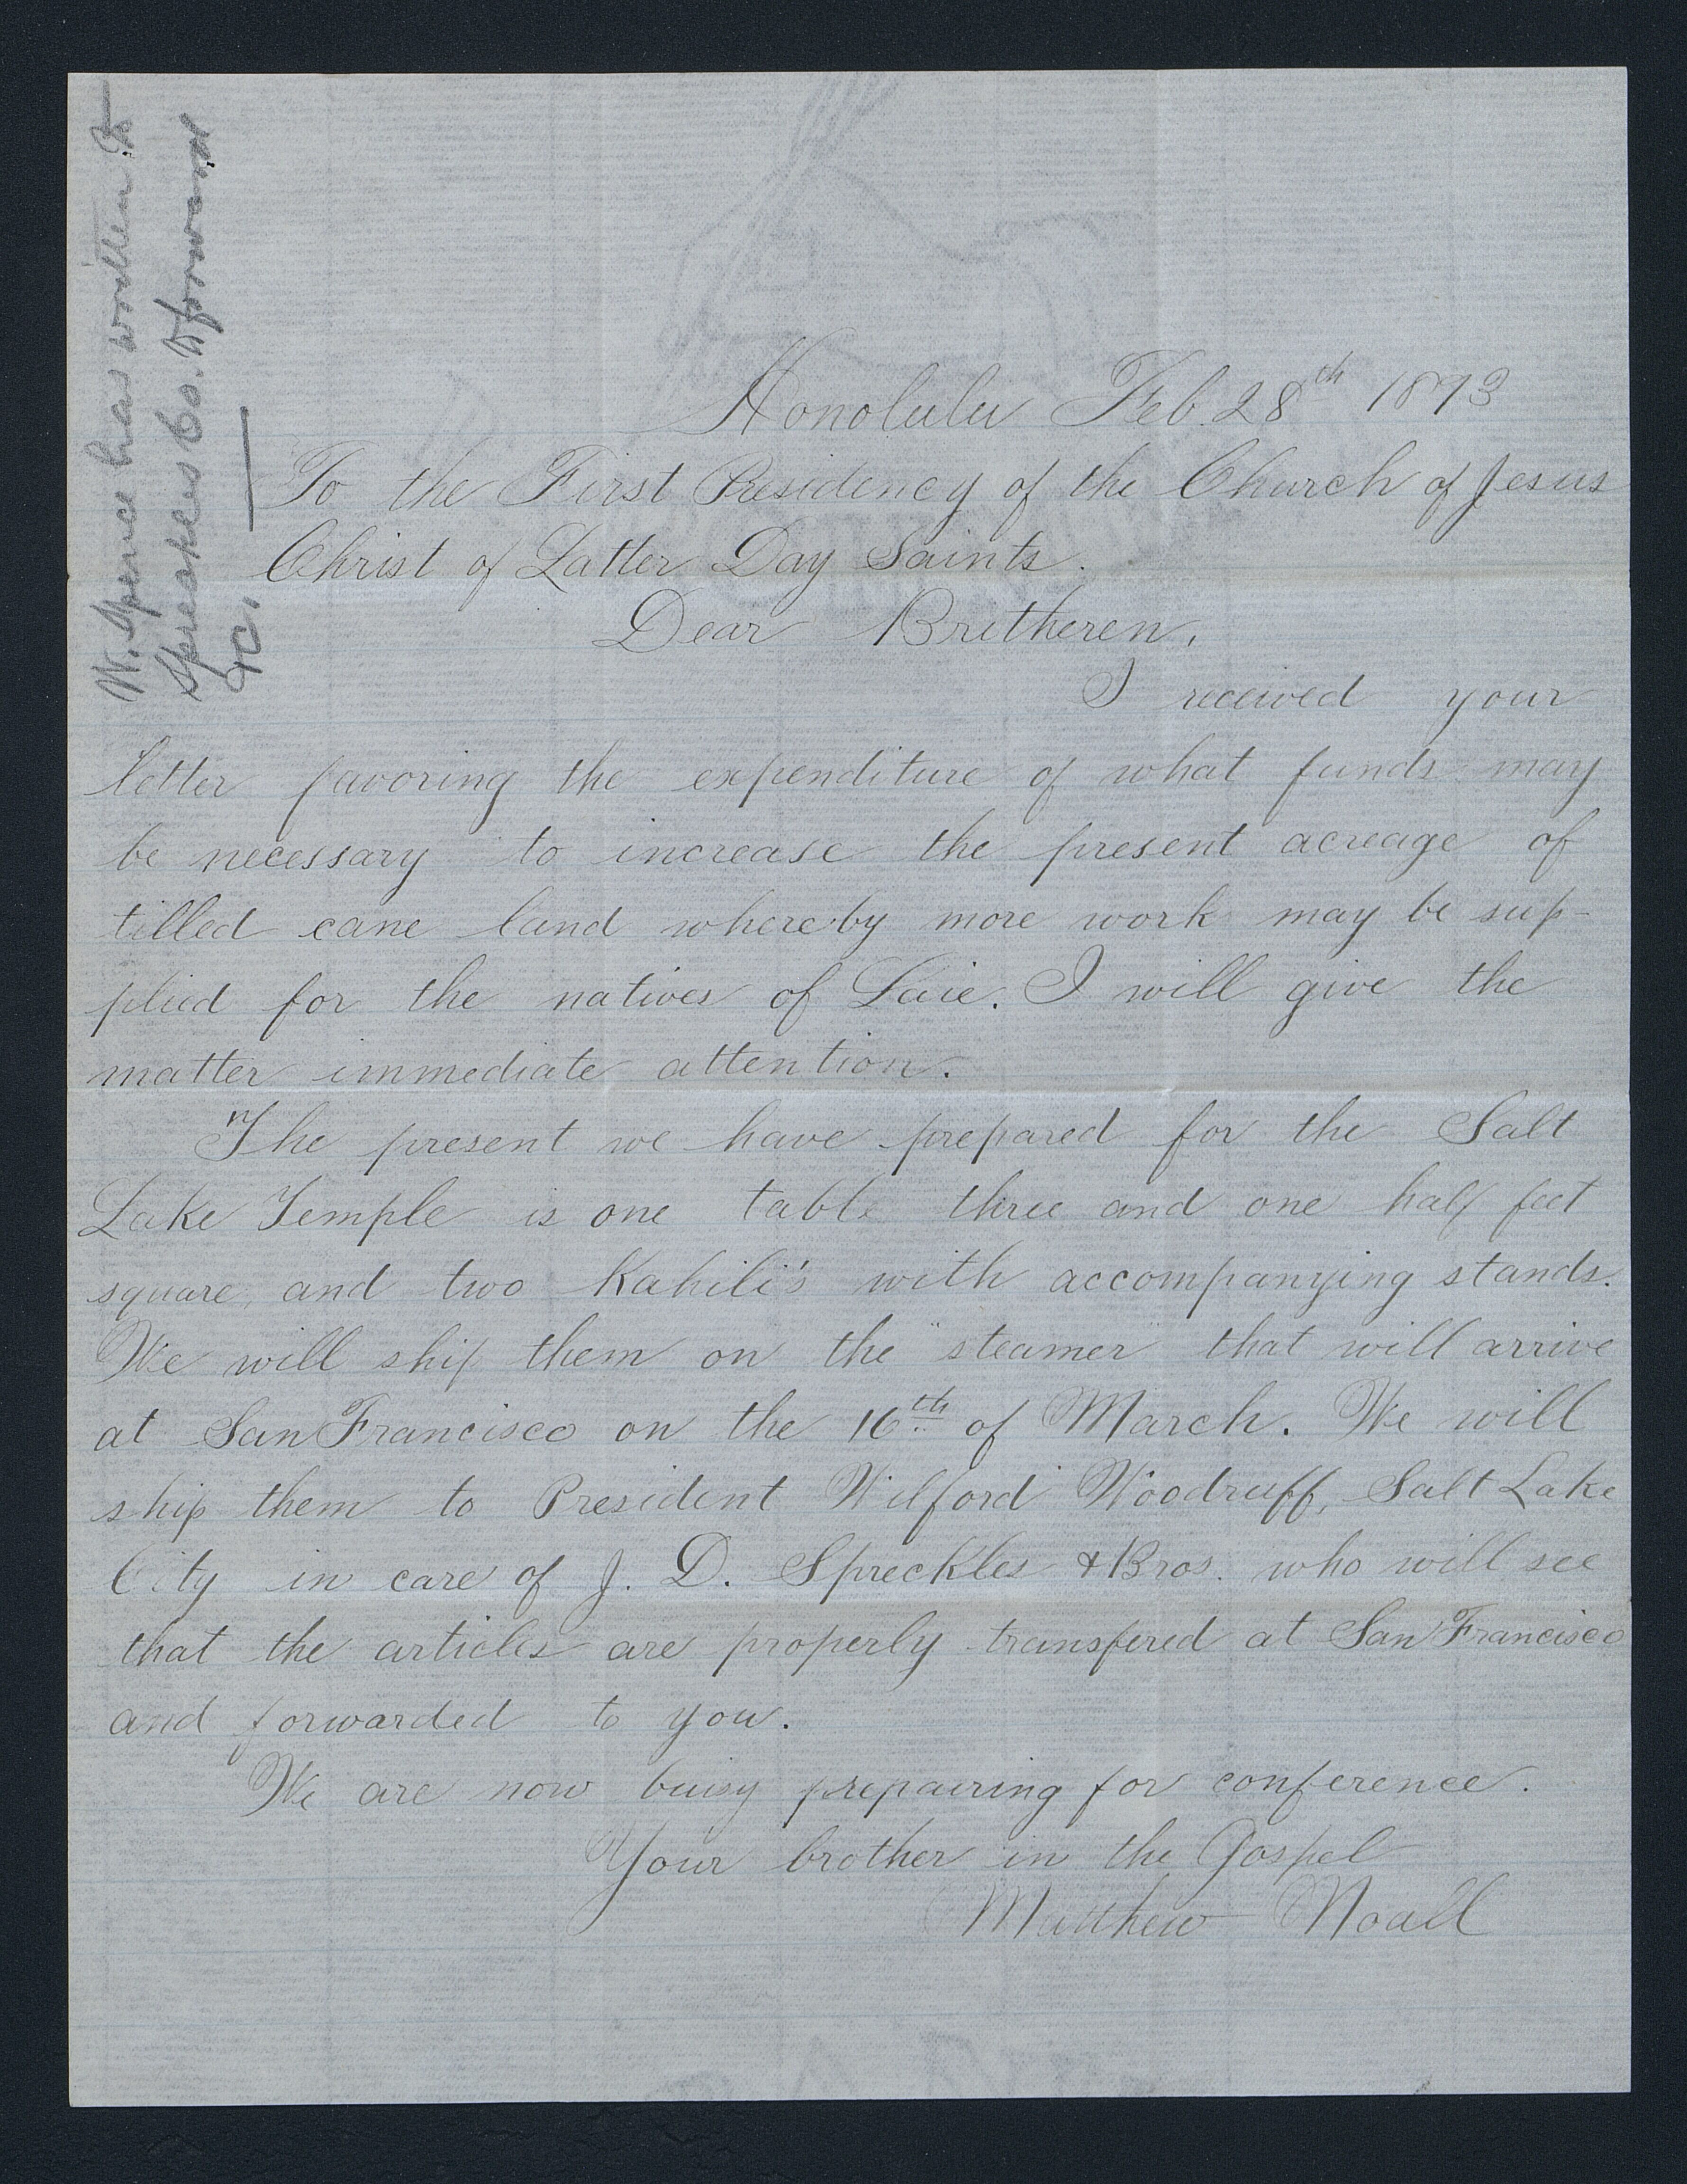 W. Spence has written to
Spreakles Co. to forward
&c.
Honolulu Feb. 28th 1893
To the First Presidency of the Church of Jesus
Christ of Latter Day Saints.
Dear Britheren,
I received your
letter favoring the expenditure of what funds may
be necessary to increase the present acreage of
tilled cane land whereby more work may be sup-
plied for the natives of Laie. I will give the
matter immediate attention.
The present we have prepared for the Salt
Lake Temple is one table three and one half feet
square, and two Kahili's with accompanying stands.
We will ship them on the "steamer" that will arrive
at San Francisco on the 16th of March. We will
ship them to President Wilford Woodruff, Salt Lake
City in care of J. D. Spreckles & Bros. who will see
that the articles are properly transfered at San Francisco
and forwarded to you.
We are now buisy prepairing for conference.
Your brother in the Gospel
Matthew Noall